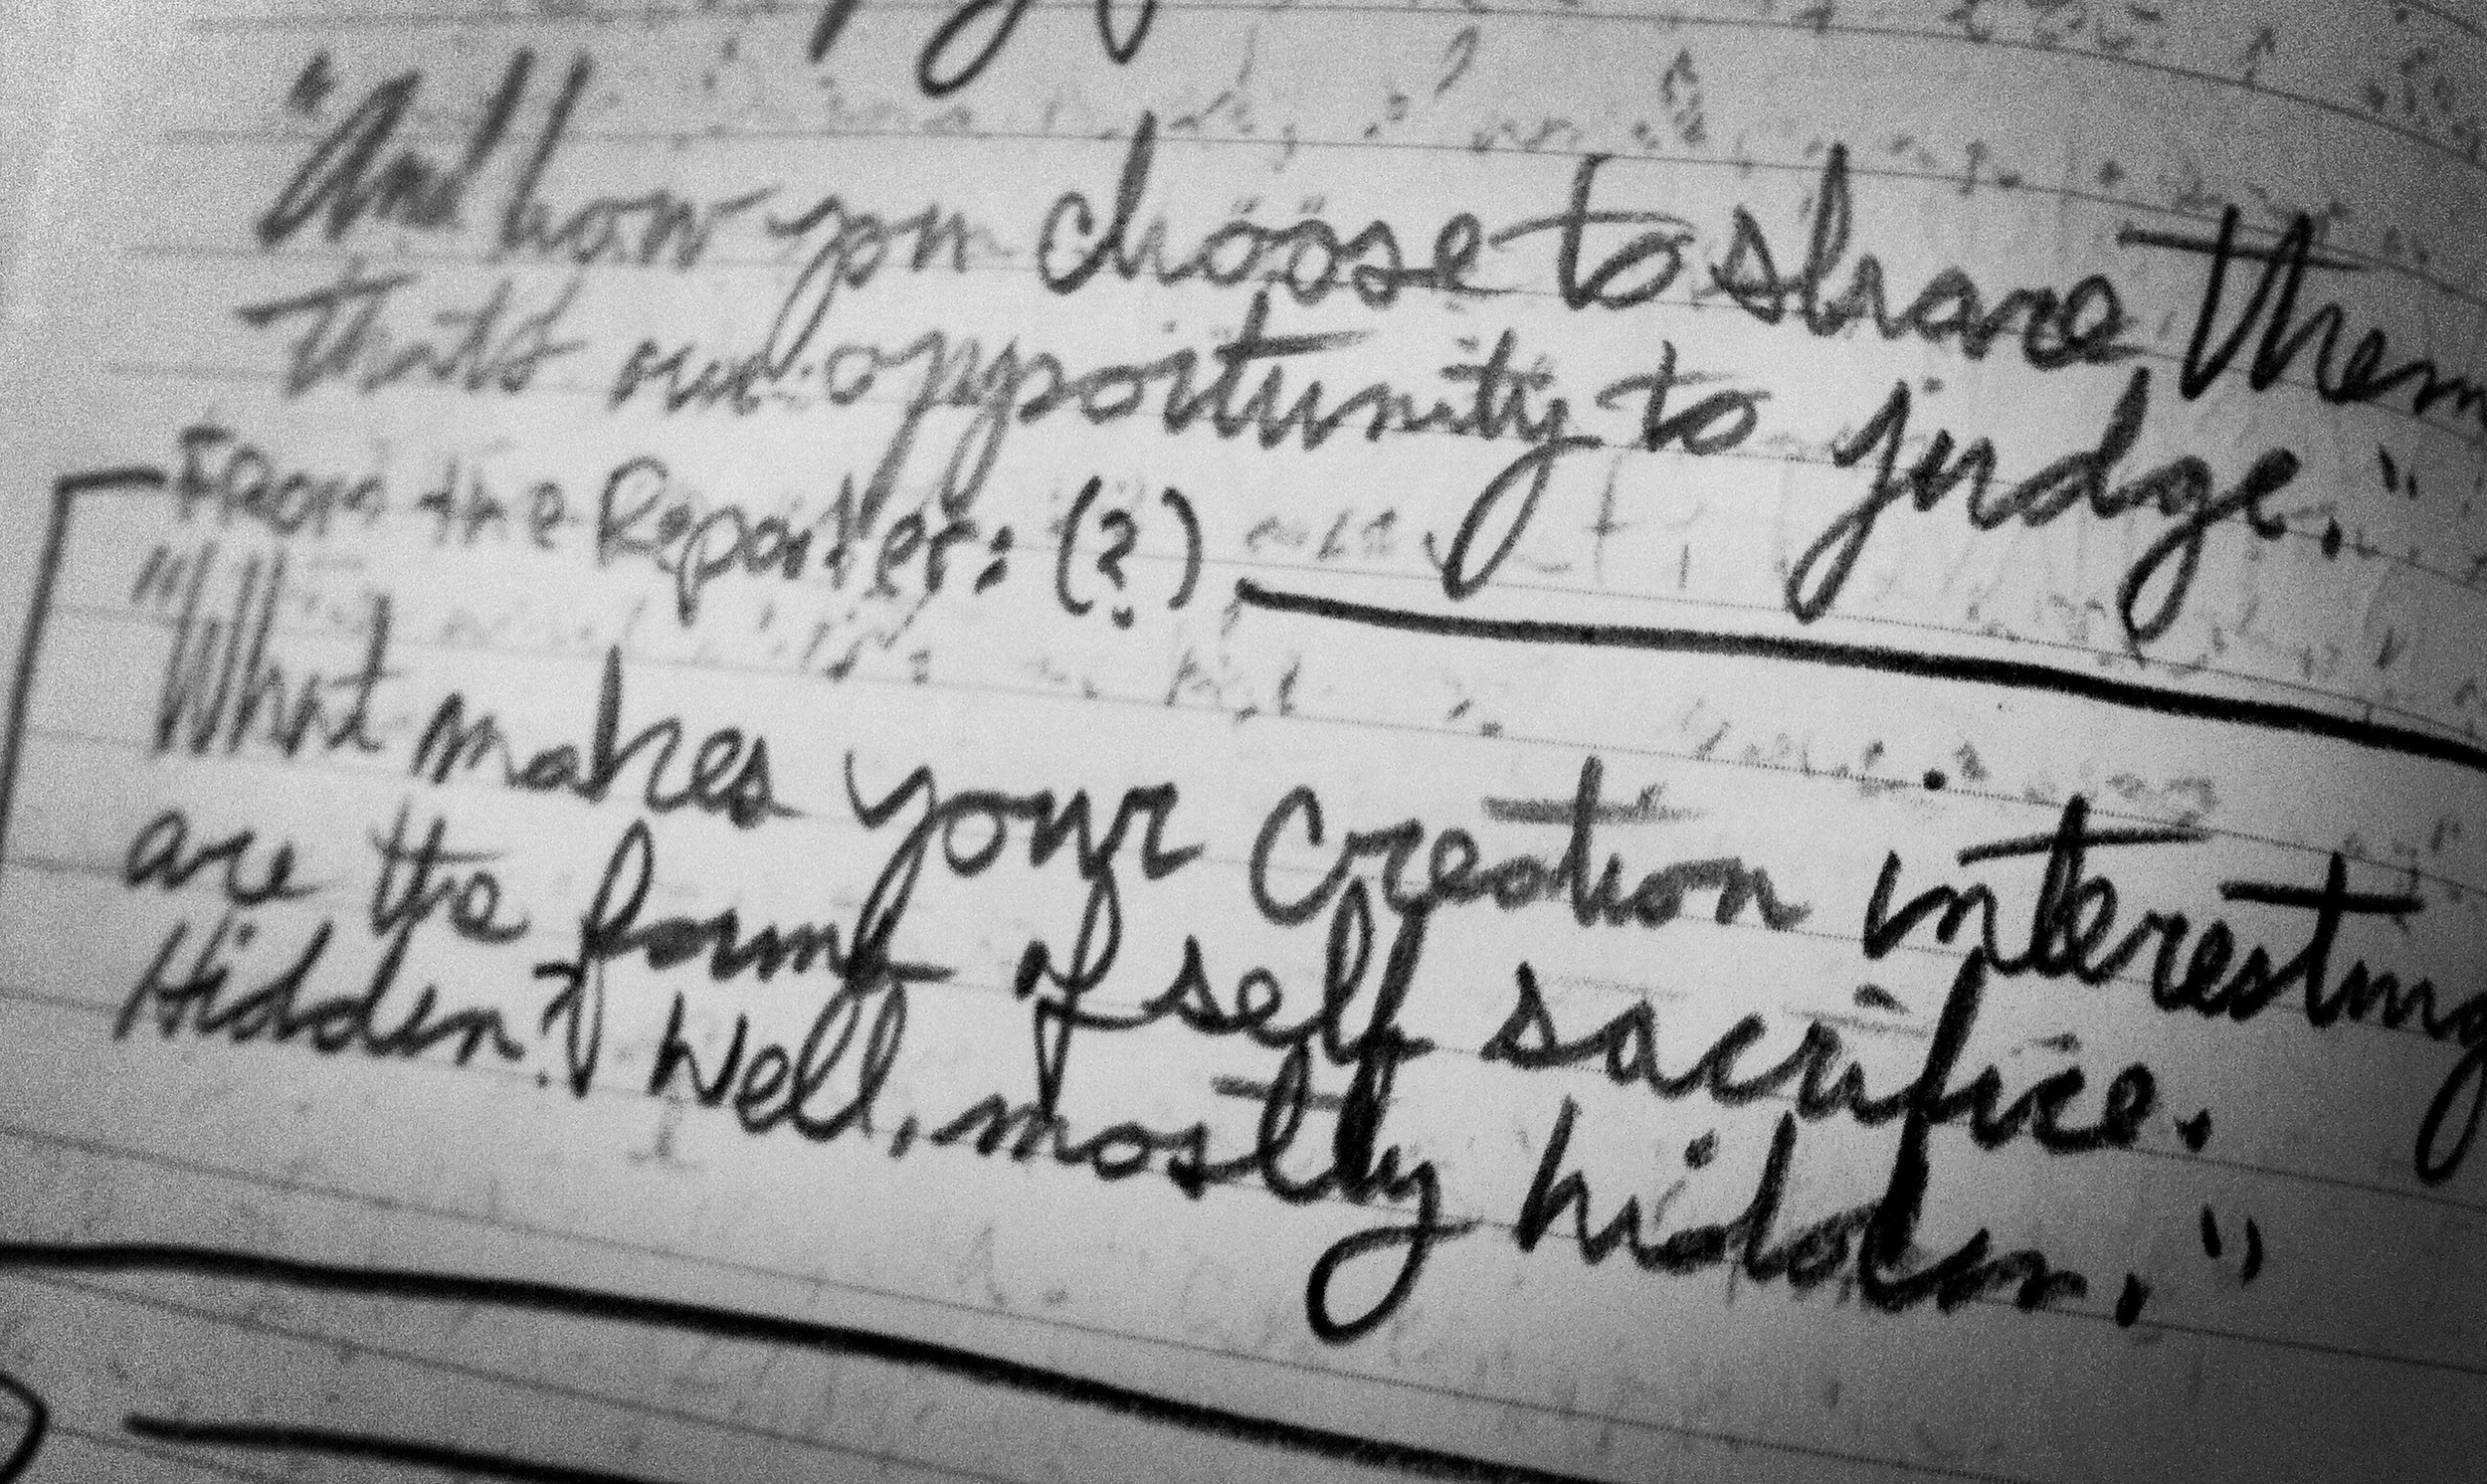 "And how you choose to share them
that's our opportunity to judge."
From the Reporter: (?)
"What makes your creation interesting
are the forms of self sacrifice.
Hidden? Well, mostly hidden."